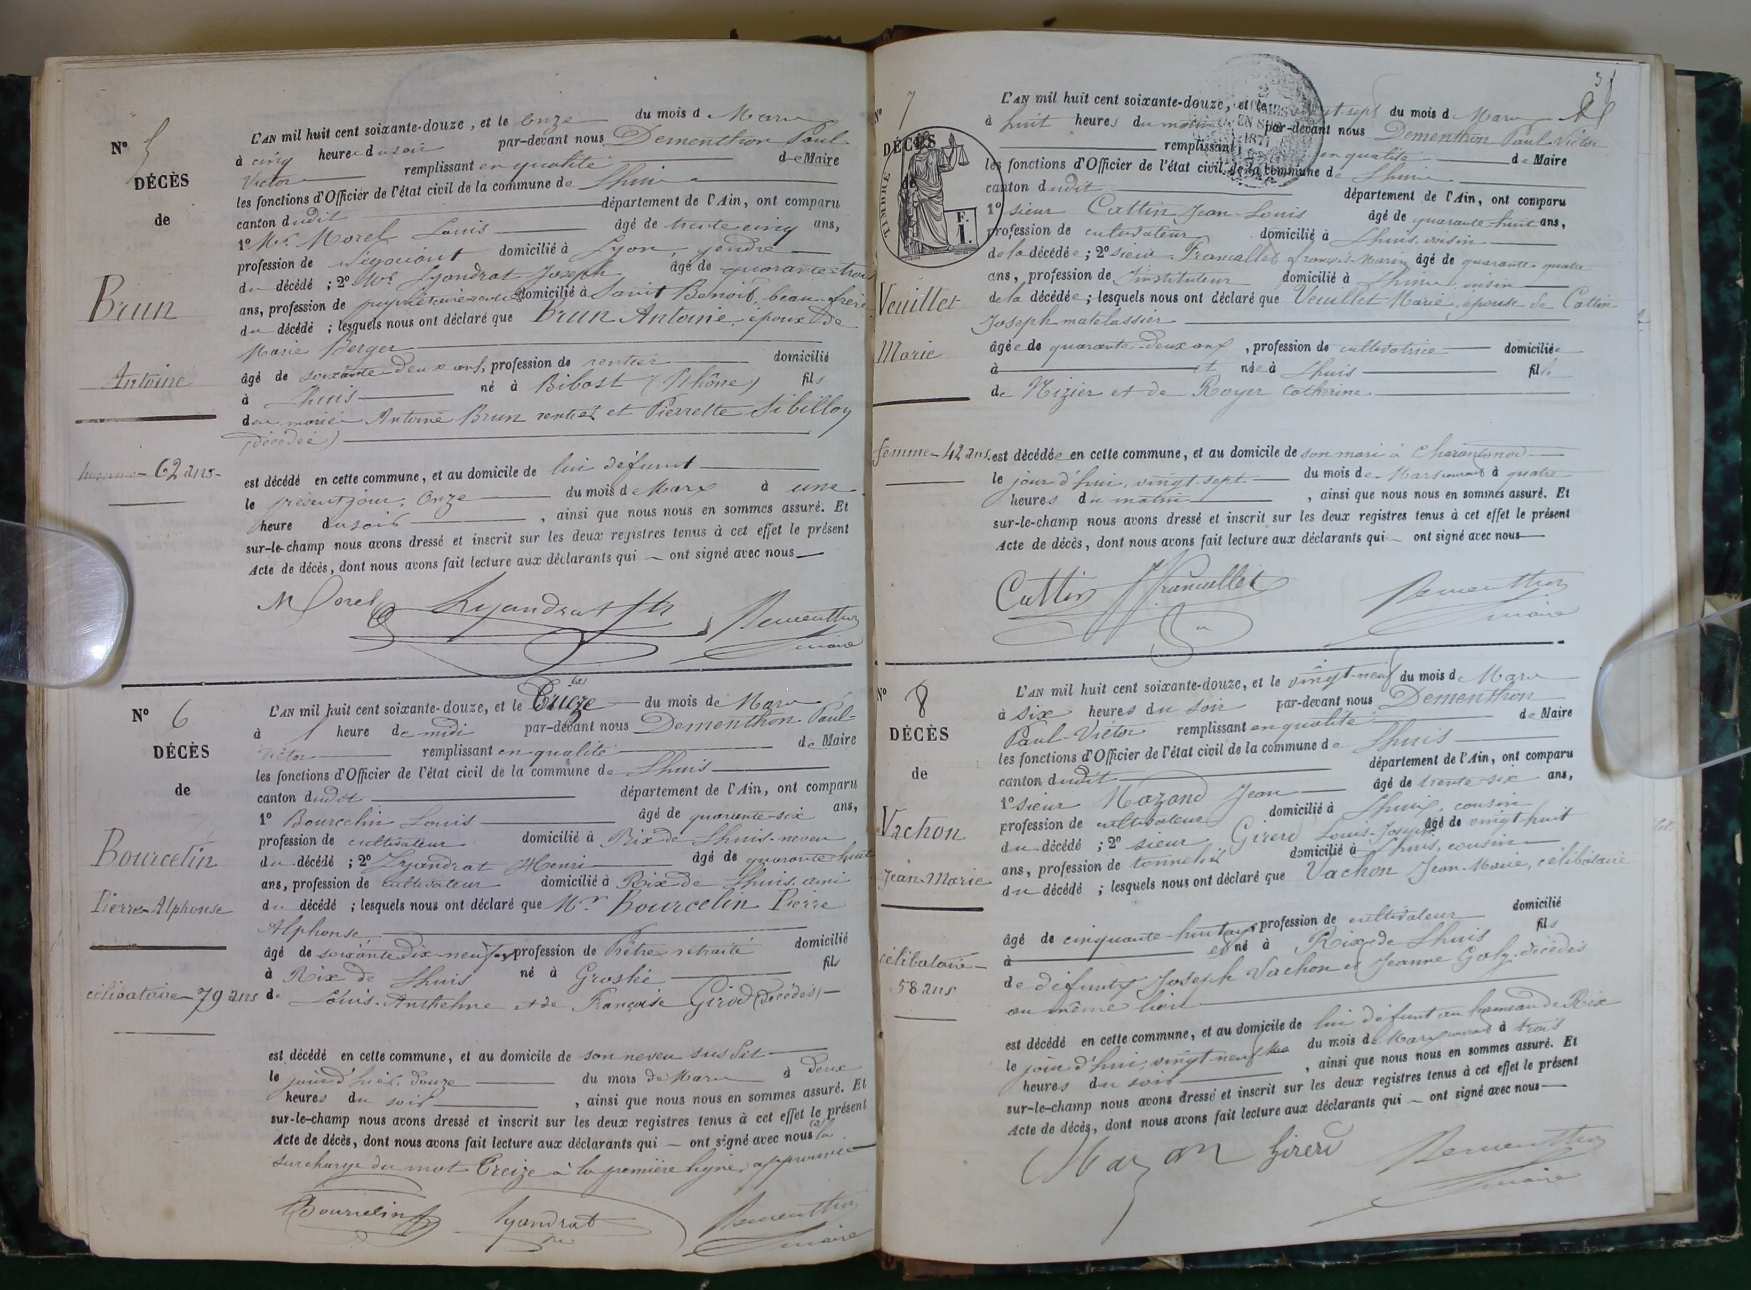 N° 5
DÉCÈS
de
Brun
Antoine
homme - 62 ans -
L'AN mil huit cent soixante-douze, et le onze du mois d Mars
à cinq heures du soir par-devant nous Dementhon Paul-
Victor remplissant en qualité de Maire
les fonctions d'Officier de l'état civil de la commune de Lhuis
canton dudit département de l'Ain, ont comparu
1° Mr Morel Louis âgé de trente cinq ans,
profession de négociant domicilié à Lyon, gendre
du décédé ; 2° Mr Lyandrat Joseph âgé de quarante-trois
ans, profession de propriétaire domicilié à Saint Benoit, beau-frère
du décédé ; lesquels nous ont déclaré que Brun Antoine, époux de
Marie Berger
âgé de soixante deux ans, profession de rentier domicilié
à Lhuis né à Bibost (Rhône) fils
de Antoine Brun rentier et Pierrette Sibilloy
(décédée)
est décédé en cette commune, et au domicile de lui défunt
le présent jour, onze du mois de Mars à une
heure du soir, ainsi que nous nous en sommes assuré. Et
sur-le-champ nous avons dressé et inscrit sur les deux registres tenus à cet effet le présent
Acte de décès, dont nous avons fait lecture aux déclarants qui — ont signé avec nous —
Morel Lyandrat Jh Dementhon
maire
N° 6
DÉCÈS
de
Bourcelin
Pierre-Alphonse
célibataire - 79 ans
L'AN mil huit cent soixante-douze, et le Treize du mois de Mars
à 1 heure de midi par-devant nous Dementhon Paul-
Victor remplissant en qualité de Maire
les fonctions d'Officier de l'état civil de la commune de Lhuis
canton dudit département de l'Ain, ont comparu
1° Bourcelin Louis âgé de quarante-six ans,
profession de cultivateur domicilié à Rix de Lhuis, neveu
du décédé ; 2° Lyandrat Henri âgé de quarante huit
ans, profession de cultivateur domicilié à Rix de Lhuis, ami
du décédé ; lesquels nous ont déclaré que Mr Bourcelin Pierre
Alphonse,
âgé de soixante dix-neuf ans profession de Prêtre retraité domicilié
à Rix de Lhuis né à Groslée fils
de Louis-Anthelme et de Françoise Girod (décédés) —
est décédé en cette commune, et au domicile de son neveu susdit
le jour d'hier, douze du mois de Mars à deux
heures du soir, ainsi que nous nous en sommes assuré. Et
sur-le-champ nous avons dressé et inscrit sur les deux registres tenus à cet effet le présent
Acte de décès, dont nous avons fait lecture aux déclarants qui — ont signé avec nous (a) la
surcharge du mot Treize à la première ligne, approuvée
Bourcelin Lyandrat Dementhon
maire
31
N° 7
DÉCÈS
de
TIMBRE
F.
I.
Veuillet
Marie
femme - 42 ans.
L'AN mil huit cent soixante-douze, et le vingt sept du mois d Mars
à huit heures du matin par-devant nous Dementhon Paul-Victor
remplissant en qualité de Maire
les fonctions d'Officier de l'état civil de la commune de Lhuis
canton dudit département de l'Ain, ont comparu
1° sieur Cattin Jean-Louis âgé de quarante huit ans,
profession de cultivateur domicilié à Lhuis, cousin
de la décédée ; 2° sieur Francillet François-Marie âgé de quarante-quatre
ans, profession d'instituteur domicilié à Lhuis, voisin
de la décédée ; lesquels nous ont déclaré que Veuillet Marie, épouse de Cattin
Joseph matelassier
âgée de quarante-deux ans, profession de cultivatrice domiciliée
à et née à Lhuis fille
de Nizier et de Royer Catherine
est décédée en cette commune, et au domicile de son mari à
le jour d'hui, vingt sept du mois de Mars courant à quatre
heures du matin, ainsi que nous nous en sommes assuré. Et
sur-le-champ nous avons dressé et inscrit sur les deux registres tenus à cet effet le présent
Acte de décès, dont nous avons fait lecture aux déclarants qui — ont signé avec nous —
Cattin Francillet Dementhon
maire
N° 8
DÉCÈS
de
Vachon
Jean-Marie
célibataire -
58 ans
L'AN mil huit cent soixante-douze, et le vingt-neuf du mois d Mars
à six heures du soir par-devant nous Dementhon
Paul-Victor remplissant en qualité de Maire
les fonctions d'Officier de l'état civil de la commune de Lhuis
canton dudit département de l'Ain, ont comparu
1° sieur Mazand Jean âgé de trente-six ans,
profession de cultivateur domicilié à Lhuis, cousin
du décédé ; 2° sieur Girerd Louis-Joseph âgé de vingt huit
ans, profession de tonnelier domicilié à Lhuis, cousin
du décédé ; lesquels nous ont déclaré que Vachon Jean-Marie, célibataire
âgé de cinquante-huit ans profession de cultivateur domicilié
à et né à Rix de Lhuis fils
de défunts Joseph Vachon et Jeanne Goly, décédés
au même lieu
est décédé en cette commune, et au domicile de lui défunt au hameau de Rix
le jour d'hui, vingt-neuf du mois de Mars courant à trois
heures du soir, ainsi que nous nous en sommes assuré. Et
sur-le-champ nous avons dressé et inscrit sur les deux registres tenus à cet effet le présent
Acte de décès, dont nous avons fait lecture aux déclarants qui — ont signé avec nous —
Mazan Girerd Dementhon
maire